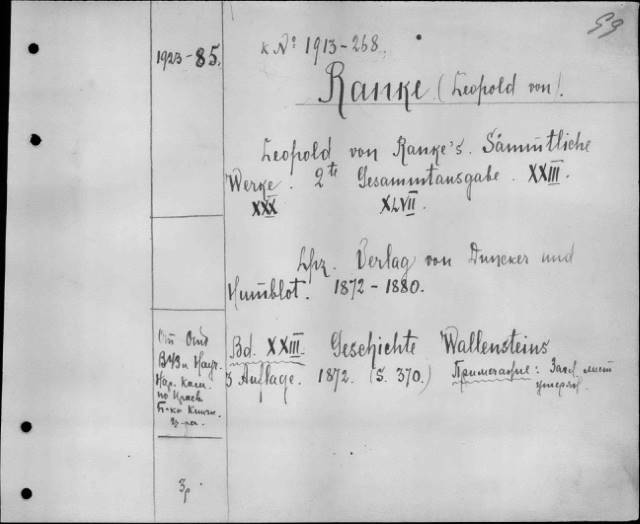 99
1923-85.
к № 1913-268.
Ranke (Leopold von).
Leopold von Ranke's. Sämmtliche
Werke. 2te Gesammtausgabe. XXIII.
XXX XLVII.
Lpz. Verlag von Duncker und
Humblot. 1872-1880.
Bd. XXIII. Geschichte Wallensteins
3 Auflage. 1872. (S. 370.) Примечание: Загл. лист
утерян.
От Отд
Нар. Ком.
по
3р